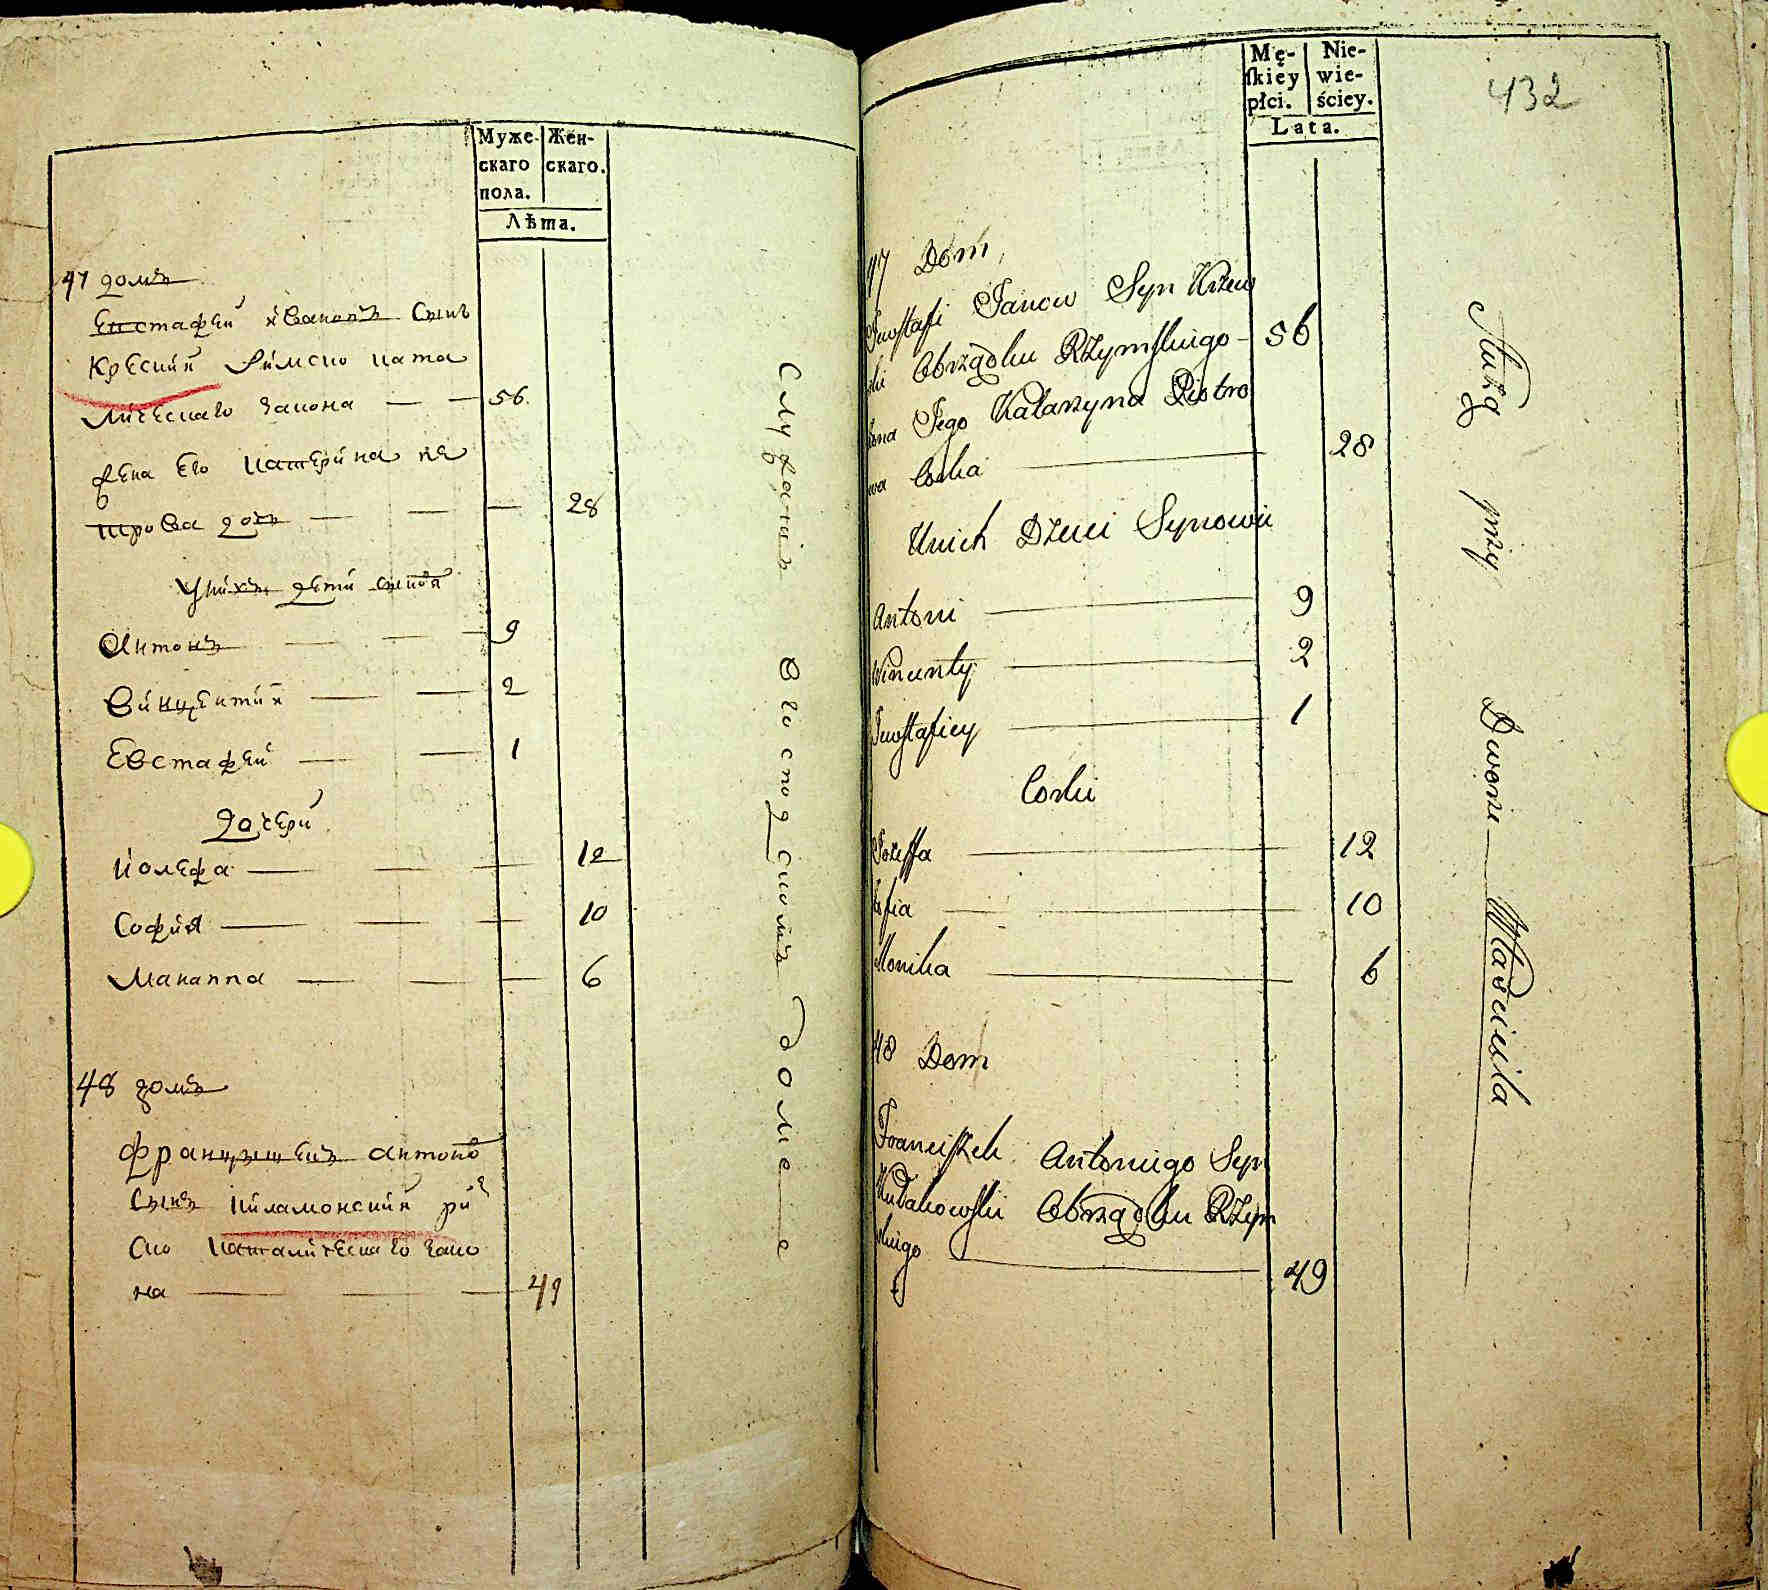 Муже-
скаго
пола.
Жен-
скаго.
Лѣта.
47 домъ
Евстафей ивановъ сынъ
Кресский Римско ката
лическаго закона — — 56.
жена Его катерина пе
трова дочь — — — 28
Уних дети сынов
Антонъ — — 9
Винцентий — — 2
Евстафей — — 1
дочери
Йозефа — — — 12
София — — — 10
Марианна — — — 6
48 домъ
францишекъ антоно
сынъ ри
ско католическаго зако
на — — — 49
Служатъ Господскомъ доме
432
Mę-
ſkiey
płci.
Nie-
wie-
ściey.
Lata.
47 Dom
Ewstafi Janow Syn
ski Obrządku Rżymskiego – 56
Żona Jego Katarzyna Piotro
wa Corka — 28
Unich Dzieci Synowie
Antoni — 9
Wincenty — 2
Ewstafiey — 1
Corki
Jozeffa — 12
Zofia — 10
Monika — 6
48 Dom
Franciszek Antoniego Syn
Obrządku Rżym
skiego — 49
Służą przy Dworze Właściciela